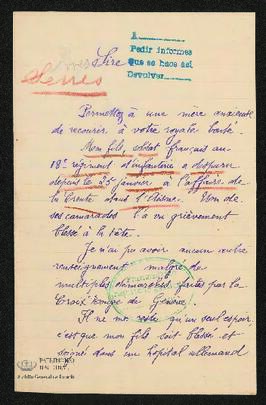 Sire
A
Pedir informes
que se hace así
Devolver
Permettez à une mère anxieuse
de recourir à votre royale bonté.
Mon fils, soldat français au
18e régiment d'infanterie a disparu
depuis le 25 janvier à l'affaire de
la Creute dans l'Aisne. Un de
ses camarades l'a vu grièvement
blessé à la tête.
Je n'ai pu avoir aucun autre
renseignement malgré de
multiples démarches faites par la
Croix Rouge de Genève.
Il ne me reste qu'un seul espoir
c'est que mon fils soit blessé et
soigné dans un hôpital allemand
PATRIMONIO
NACIONAL